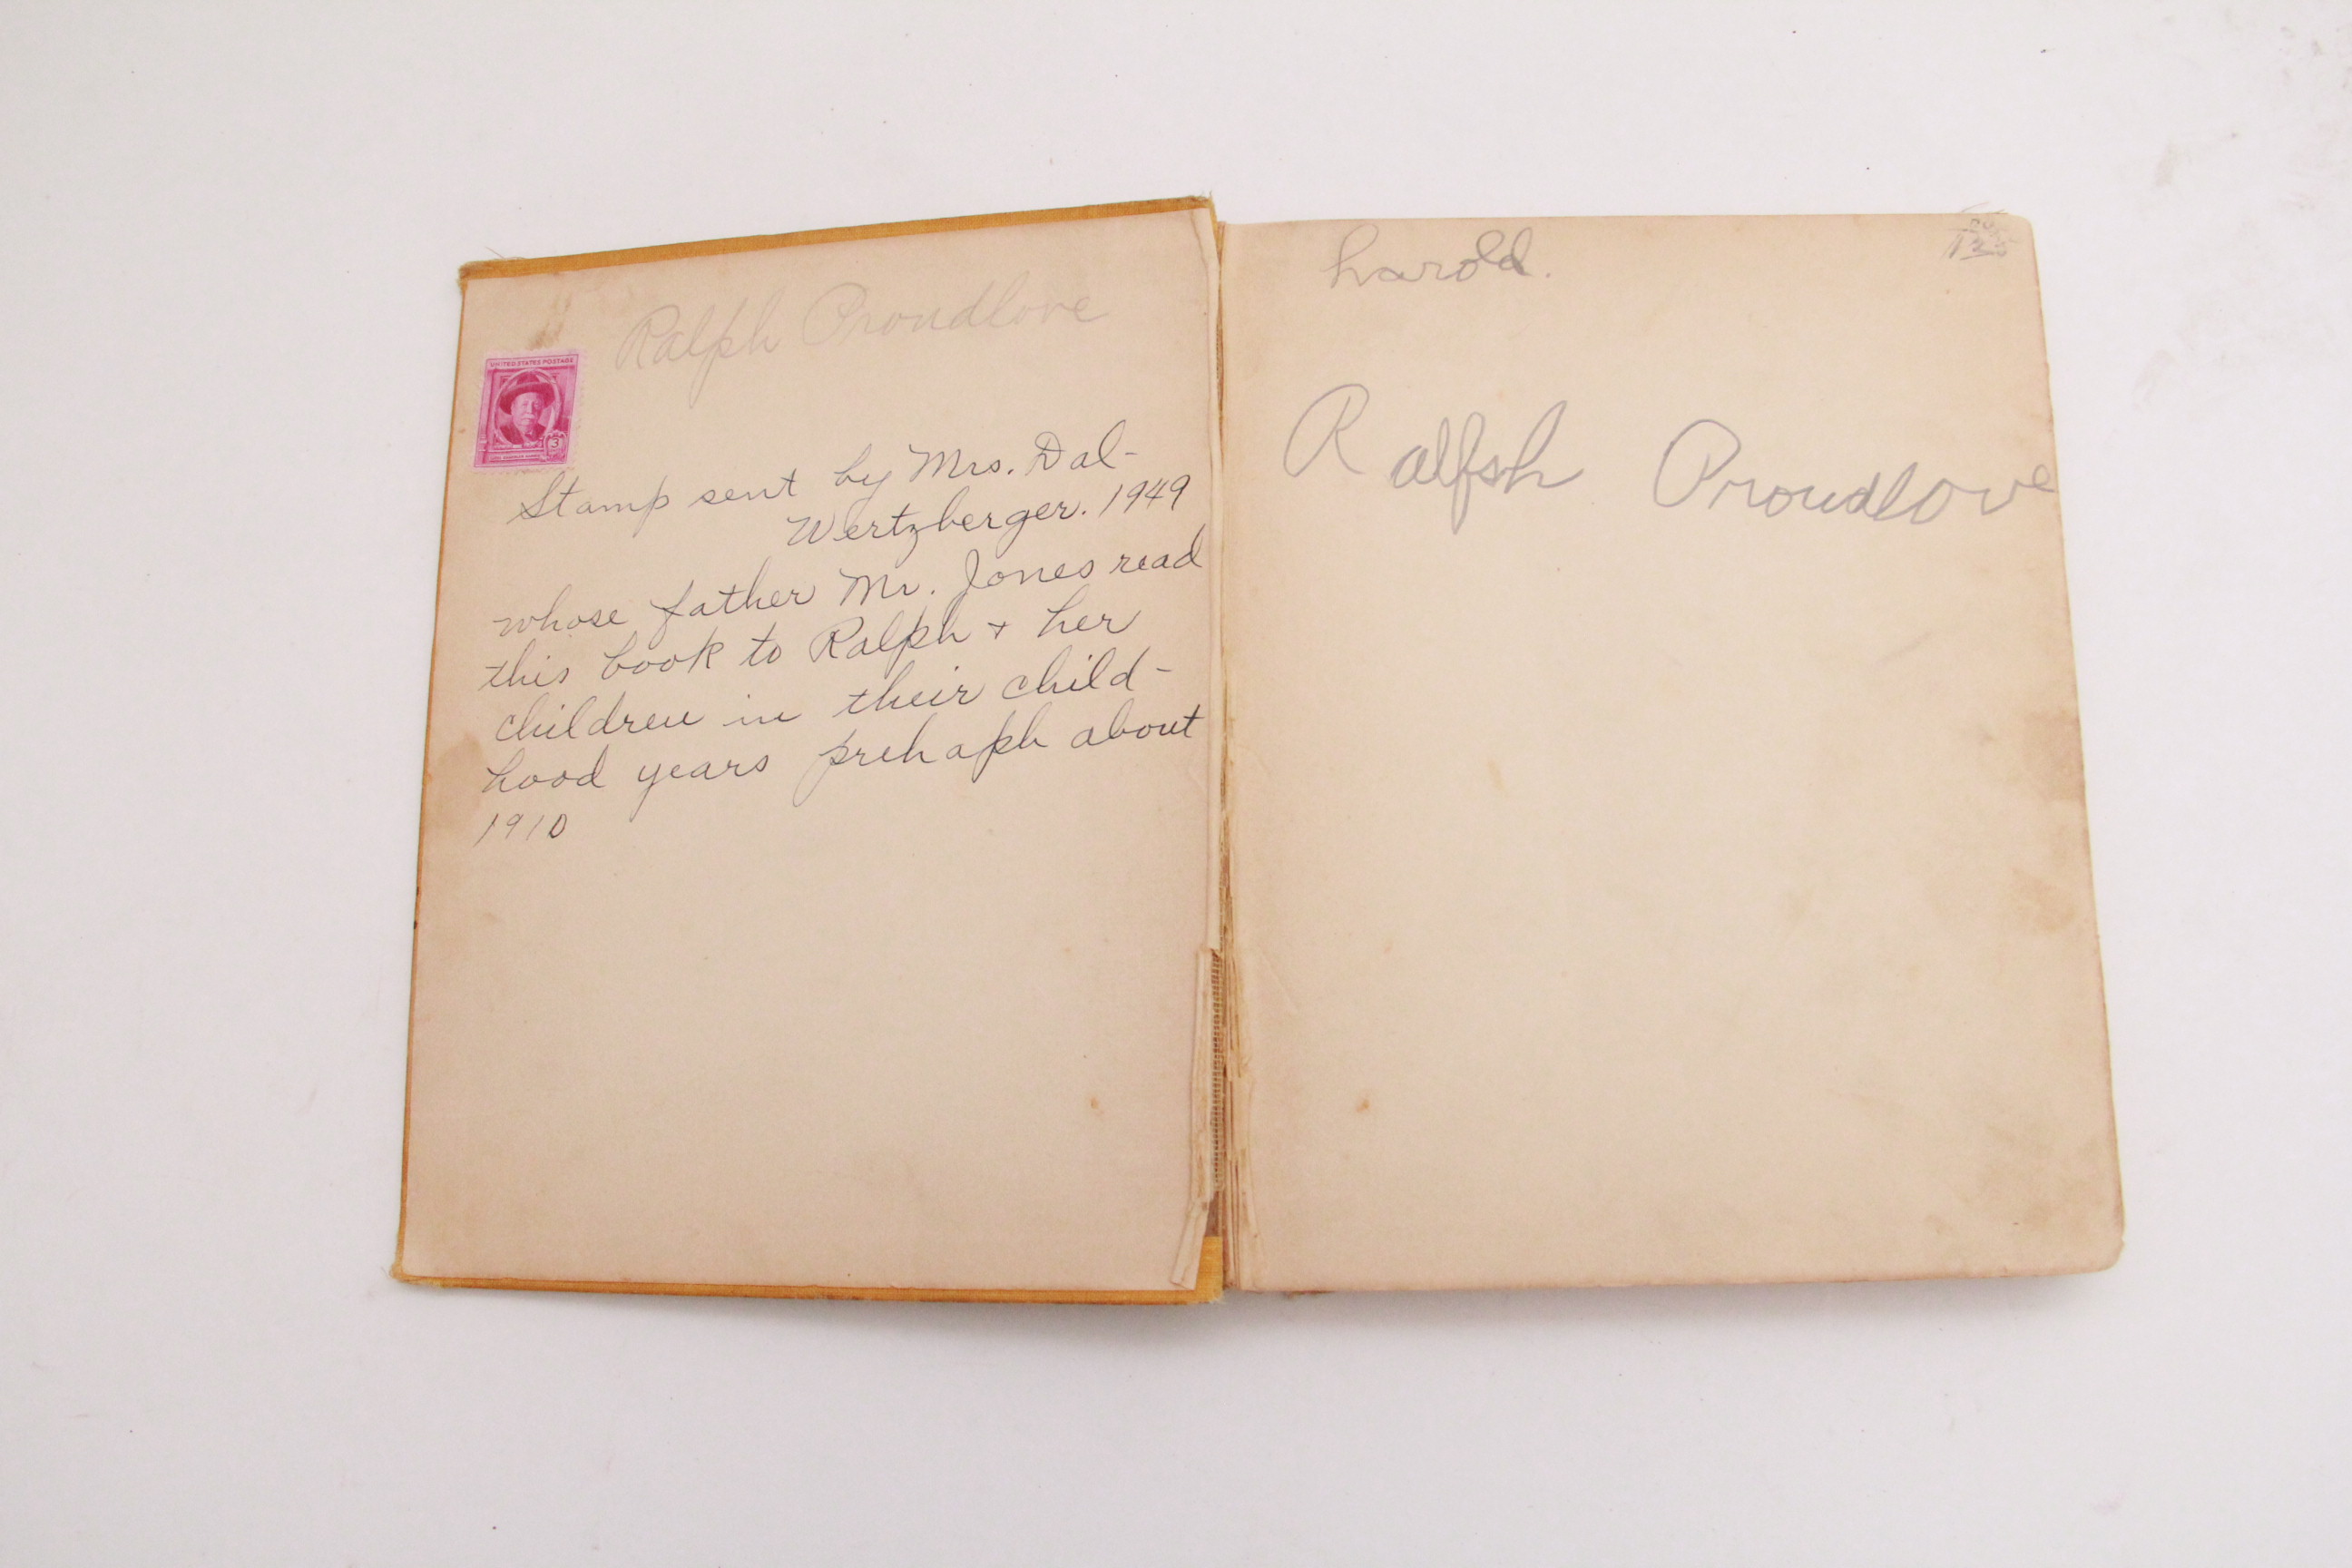 Ralph Proudlove
UNITED STATES POSTAGE
3
Stamp sent by Mrs. Dal-
Wertzberger. 1949
whose father Mr. Jones read
this book to Ralph + her
children in their child-
hood years prehaph about
1910
harold.
Ralph Proudlove